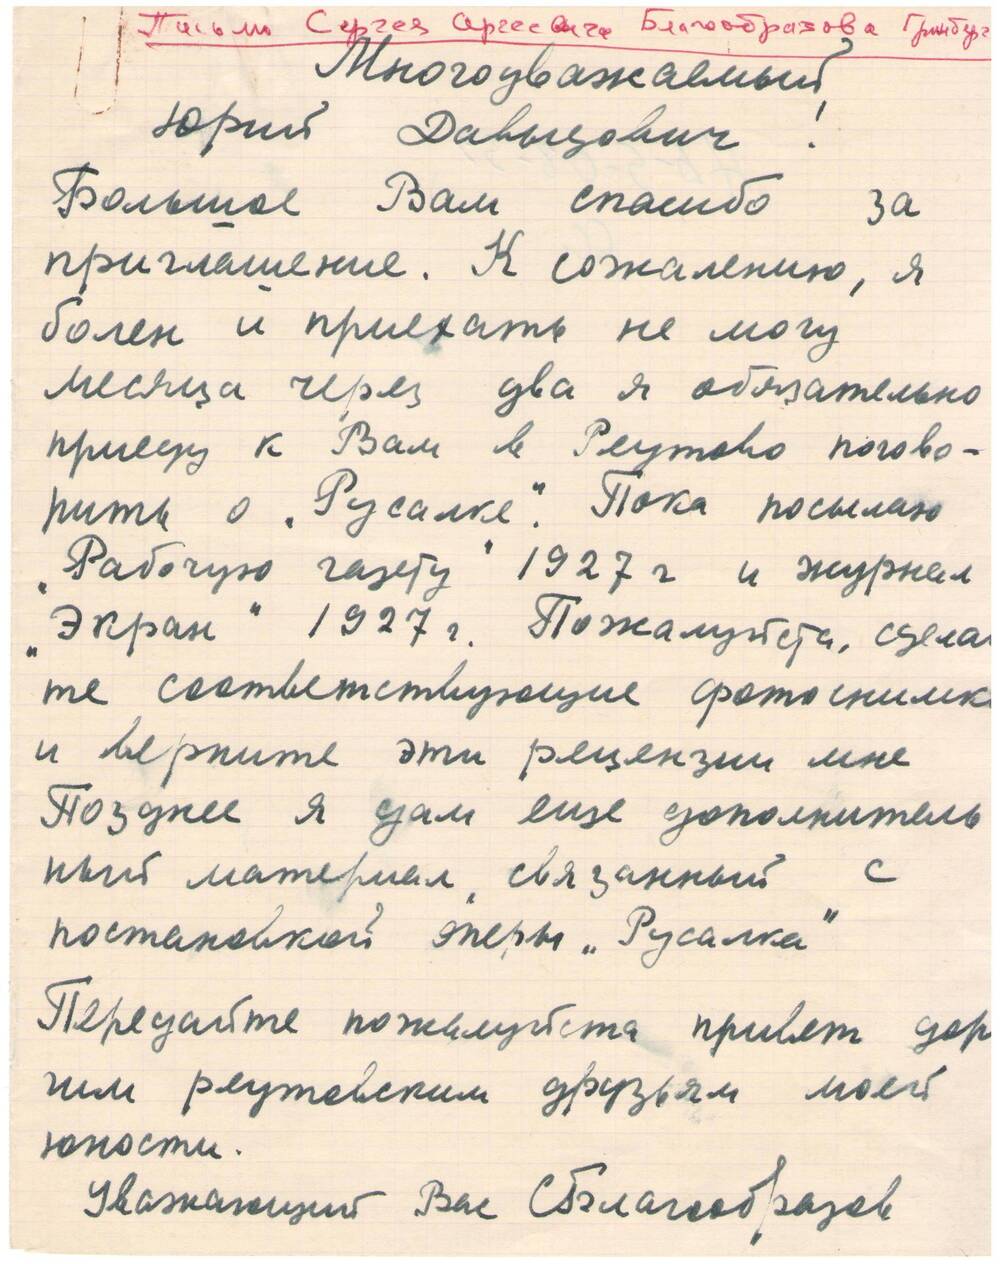 Письмо Сергея Сергеевича Благообразова Гринберг
Многоуважаемый
Юрий Давыдович!
Большое Вам спасибо за
приглашение. К сожалению, я
болен и приехать не могу
месяца через два я обязательно
приеду к Вам в Реутово погово-
рить о „Русалке". Пока посылаю
„Рабочую газету" 1927 г и журнал
„Экран" 1927 г. Пожалуйста, сделай
те соответствующие фотоснимк
и верните эти рецензии мне
Позднее я дам еще дополнитель
ный материал, связанный с
постановкой оперы „Русалка"
Передайте пожалуйста привет дор
гим реутовским друзьям моей
юности.
Уважающий Вас СБлагообразов